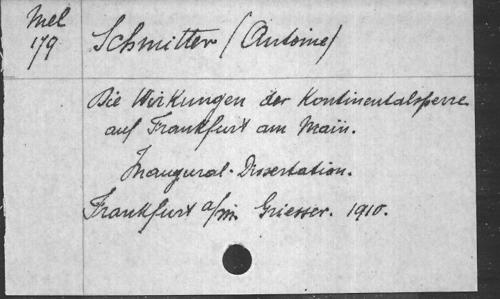 Mel
179
Schmitter (Antoine)
Die Wirkungen der Kontinentalsperre
auf Frankfurt am Main.
Inaugural-Dissertation.
Frankfurt a/m. Griesser. 1910.